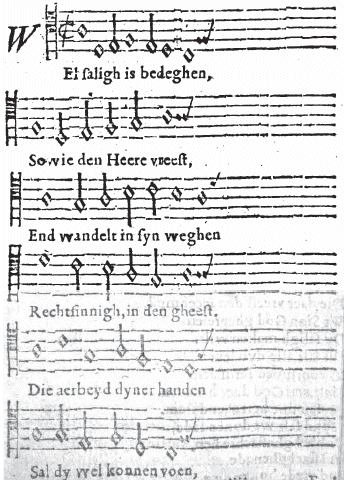 W
El saligh is bedeghen,
So wie den Heere vreest,
End wandelt in syn weghen
Rechtsinnigh, in den gheest.
Die aerbeyd dyner handen
Sal dy wel konnen voen,